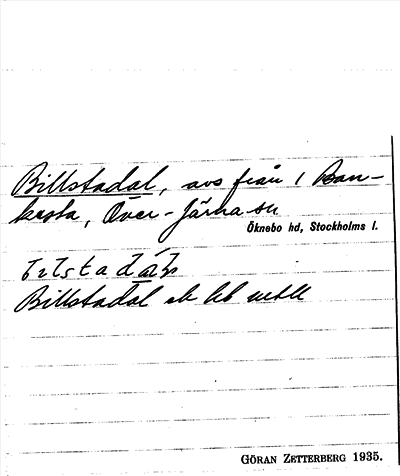 Billstadal, avs från 1 Ban-
kesta, Över-Järna sn
Öknebo hd, Stockholms l.
Billstadal ek lht
GÖRAN ZETTERBERG 1935.